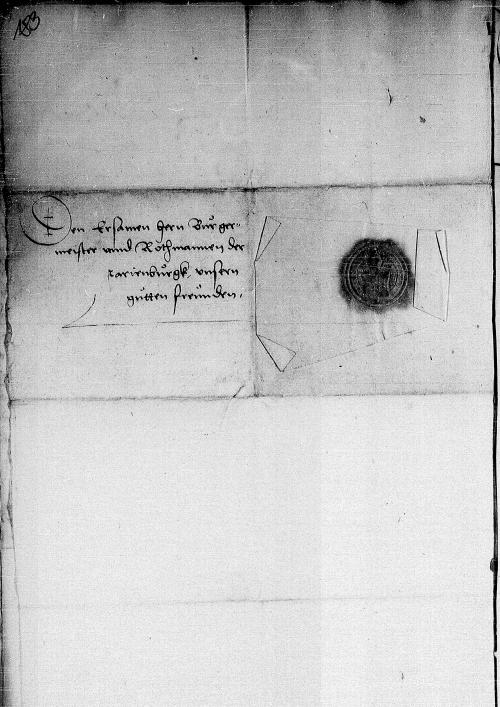 183
Den Ersamen Hern Bürger-
meister vnnd Rothmannen der
Marienburgk vnsern
gutten freünden.